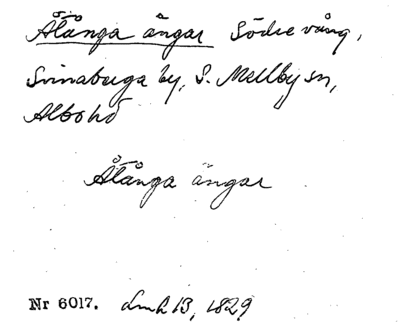 Åtånga ängar Södre vång,
Svinaberga by, S. Mellby sn,
Albo hd
Åtånga ängar
Nr 6017. Lmh B, 1829